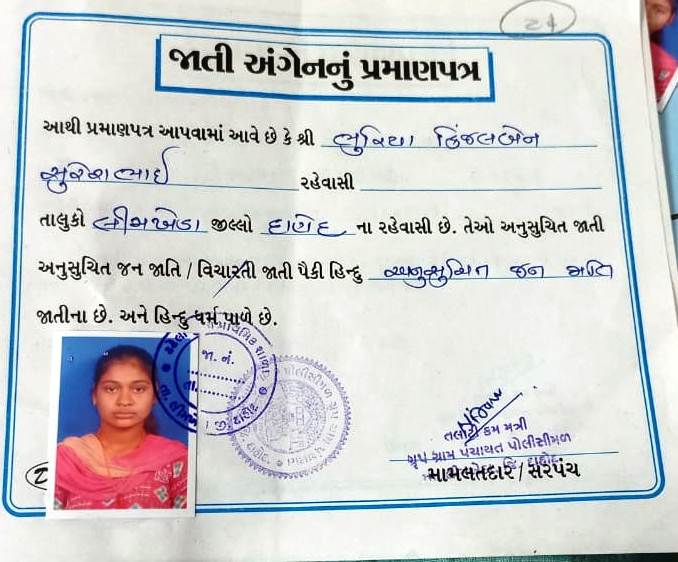 24
જાતી અંગેનનું પ્રમાણપત્ર
આથી પ્રમાણપત્ર આપવામાં આવે છે કે શ્રી ભુરિયા કિંજલબેન
સુરેશભાઇ રહેવાસી
તાલુકો લીમખેડા જીલ્લો દાહોદ ના રહેવાસી છે. તેઓ અનુસુચિત જાતી
અનુસુચિત જન જાતિ / વિચારતી જાતી પૈકી હિન્દુ અનુસુચિત જન જાતિ
જાતીના છે. અને હિન્દુ ધર્મ પાળે છે.
પ્રાથમિક શાળા
જા. નં.
તા.
તલાટી કમ મંત્રી
ગ્રુપ ગ્રામ પંચાયત પોલીસીમળ
મામલતદાર / સરપંચ